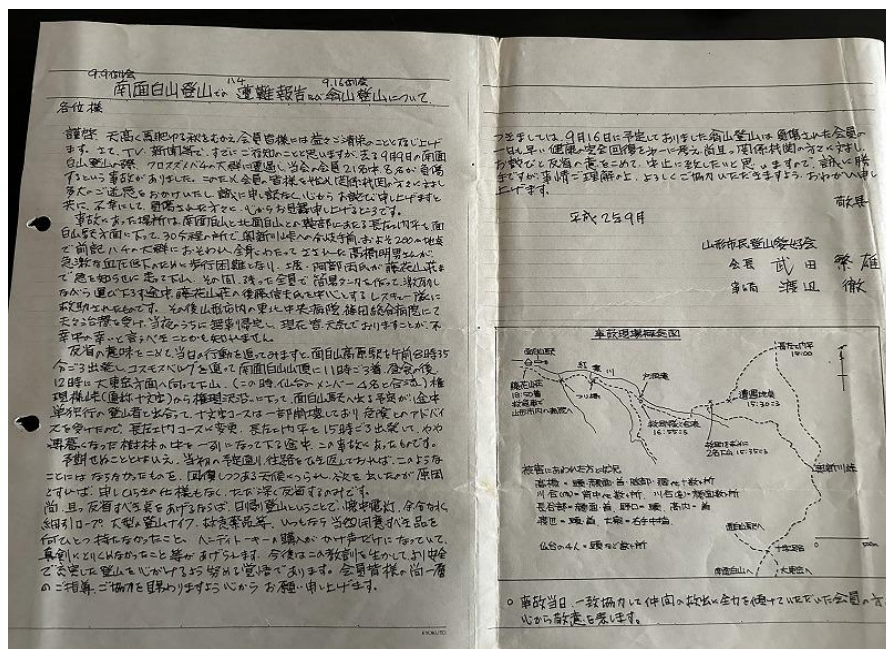 9.9例会
ハチ
9.16例会
南面白山登山での遭難報告及び翁山登山について
各位様
謹啓 天高く馬肥ゆる秋をむかえ会員皆様には益々ご清栄のこととなじ上げ
ます。さて、TV、新聞等で、すでにご存知のことと思いますが、去る9月9日の南面
白山登山の際、クロスズメバチの大群に遭遇し、当会の会員21名中、8名が負傷
するという事故がありました。このため会員の皆様を始め関係機関の方々に対し
多大のご迷惑をおかけいたし誠に申し訳なく心からお詫び申し上げますと
共に、不幸にして負傷された方々に、心からお見舞申し上げるところです。
事故にあった場所は、南面白山と北面白山との鞍部にあたる長左エ門平を面
白山駅方面に下って、30分程の所で、奥新川峠への分岐手前、およそ200m地点
で前記ハチの大群におそわれ、全身にわたってさされた高橋明男さんが、
急激な血圧低下のために歩行困難となり、土屋・阿部両氏が藤花山荘ま
で急を知らせに走って下山、その間、残った全員で簡易タンカを作って、激励し
ながら運び下ろす途中、藤花山荘の後藤信夫氏を中心とするレスキュー隊に
救助されたものです。その後山形市内の東北中央病院、篠田総合病院にて
夫々治療を受け、当夜のうちに無事帰宅し、現在皆元気でおりますことが、不
幸中の幸いと言うべきことかも知れません。
反省の意味をこめて、当日の行動を追ってみますと、面白山高原駅を午前8時35
分ごろ出発し、コスモスベルグを通って南面白山山頂に11時ごろ着、昼食の後
12時に大東岳方面へ向って下山、(この時、仙台のメンバー4名と合流)権
現様峠(通称十文字)から権現沢沿いに下って、面白山駅へ出る予定が、途中
単独行の登山者と出会って、十文字コースは一部崩壊しており危険とのアドバイ
スを受けたので、長左エ門コースに変更、長左エ門平を15時ごろ出発して、やや
薄暗になった樹林の中を一列になって下る途中、この事故にあったものです。
予期せぬこととはいえ、当初の予定通り、往路をひき返しておれば、このような
ことにはならなかったものを、回復しつつある天候につられ、欲を出したのが原因
とすれば、申しひらきの仕様もなく、ただ深く反省するのみです。
尚、且つ反省すべき点をあげるならば、日帰登山ということで、懐中電灯、余分なく
細引ロープ、大型の登山ナイフ、救急薬品等、いつもなら当然用意すべき品を
何でいとつ持たなかったこと、ハンディトーキーの購入がかけ声だけになっていて、
真剣にとりくめなかったこと等があげられます。今後はこの教訓を生かして、より安全
で充実した登山を心がけるよう努める覚悟であります。会員皆様の尚一層
のご指導、ご協力を賜わりますよう心からお願い申し上げます。
KYOKUTO
つきましては、9月16日に予定しておりました翁山登山は負傷された会員の
一日も早い健康の完全回復を第一に考え、尚且つ関係機関の方々に対し、
お詫びと反省の意をこめて、中止に致したいと思いますので、誠に勝
手ですが、事情ご理解の上、よろしくご協力いただきますよう、おねがい申し
上げます。
敬具
平成2年9月
山形市民登山愛好会
会長 武田 繁雄
事務局 渡辺 徹
事故現場概念図
面白山駅
藤花山荘
18:50着
救急車で
山形市内の病院へ
紅葉川
つり橋
戸沢滝
救助隊と合流
16:55ごろ
救助要請に
2名下山 15:35ごろ
遭遇地点
15:30ごろ
長左エ門平
15:00
奥新川峠
面白山駅へ
十字路
南面白山へ
大東岳へ
0
500m
被害にあわれた方と状況
高橋=頭・顔面・首・腕部・腰・他十数ヶ所
長谷部=顔面・首、野口=頭、高内=首
渡辺=頭・首、大泉=右手中指
仙台の4人=頭など数ヶ所
○ 事故当日、一致協力して仲間の救出に全力を傾けていただいた会員の方に
心から敬意を表します。